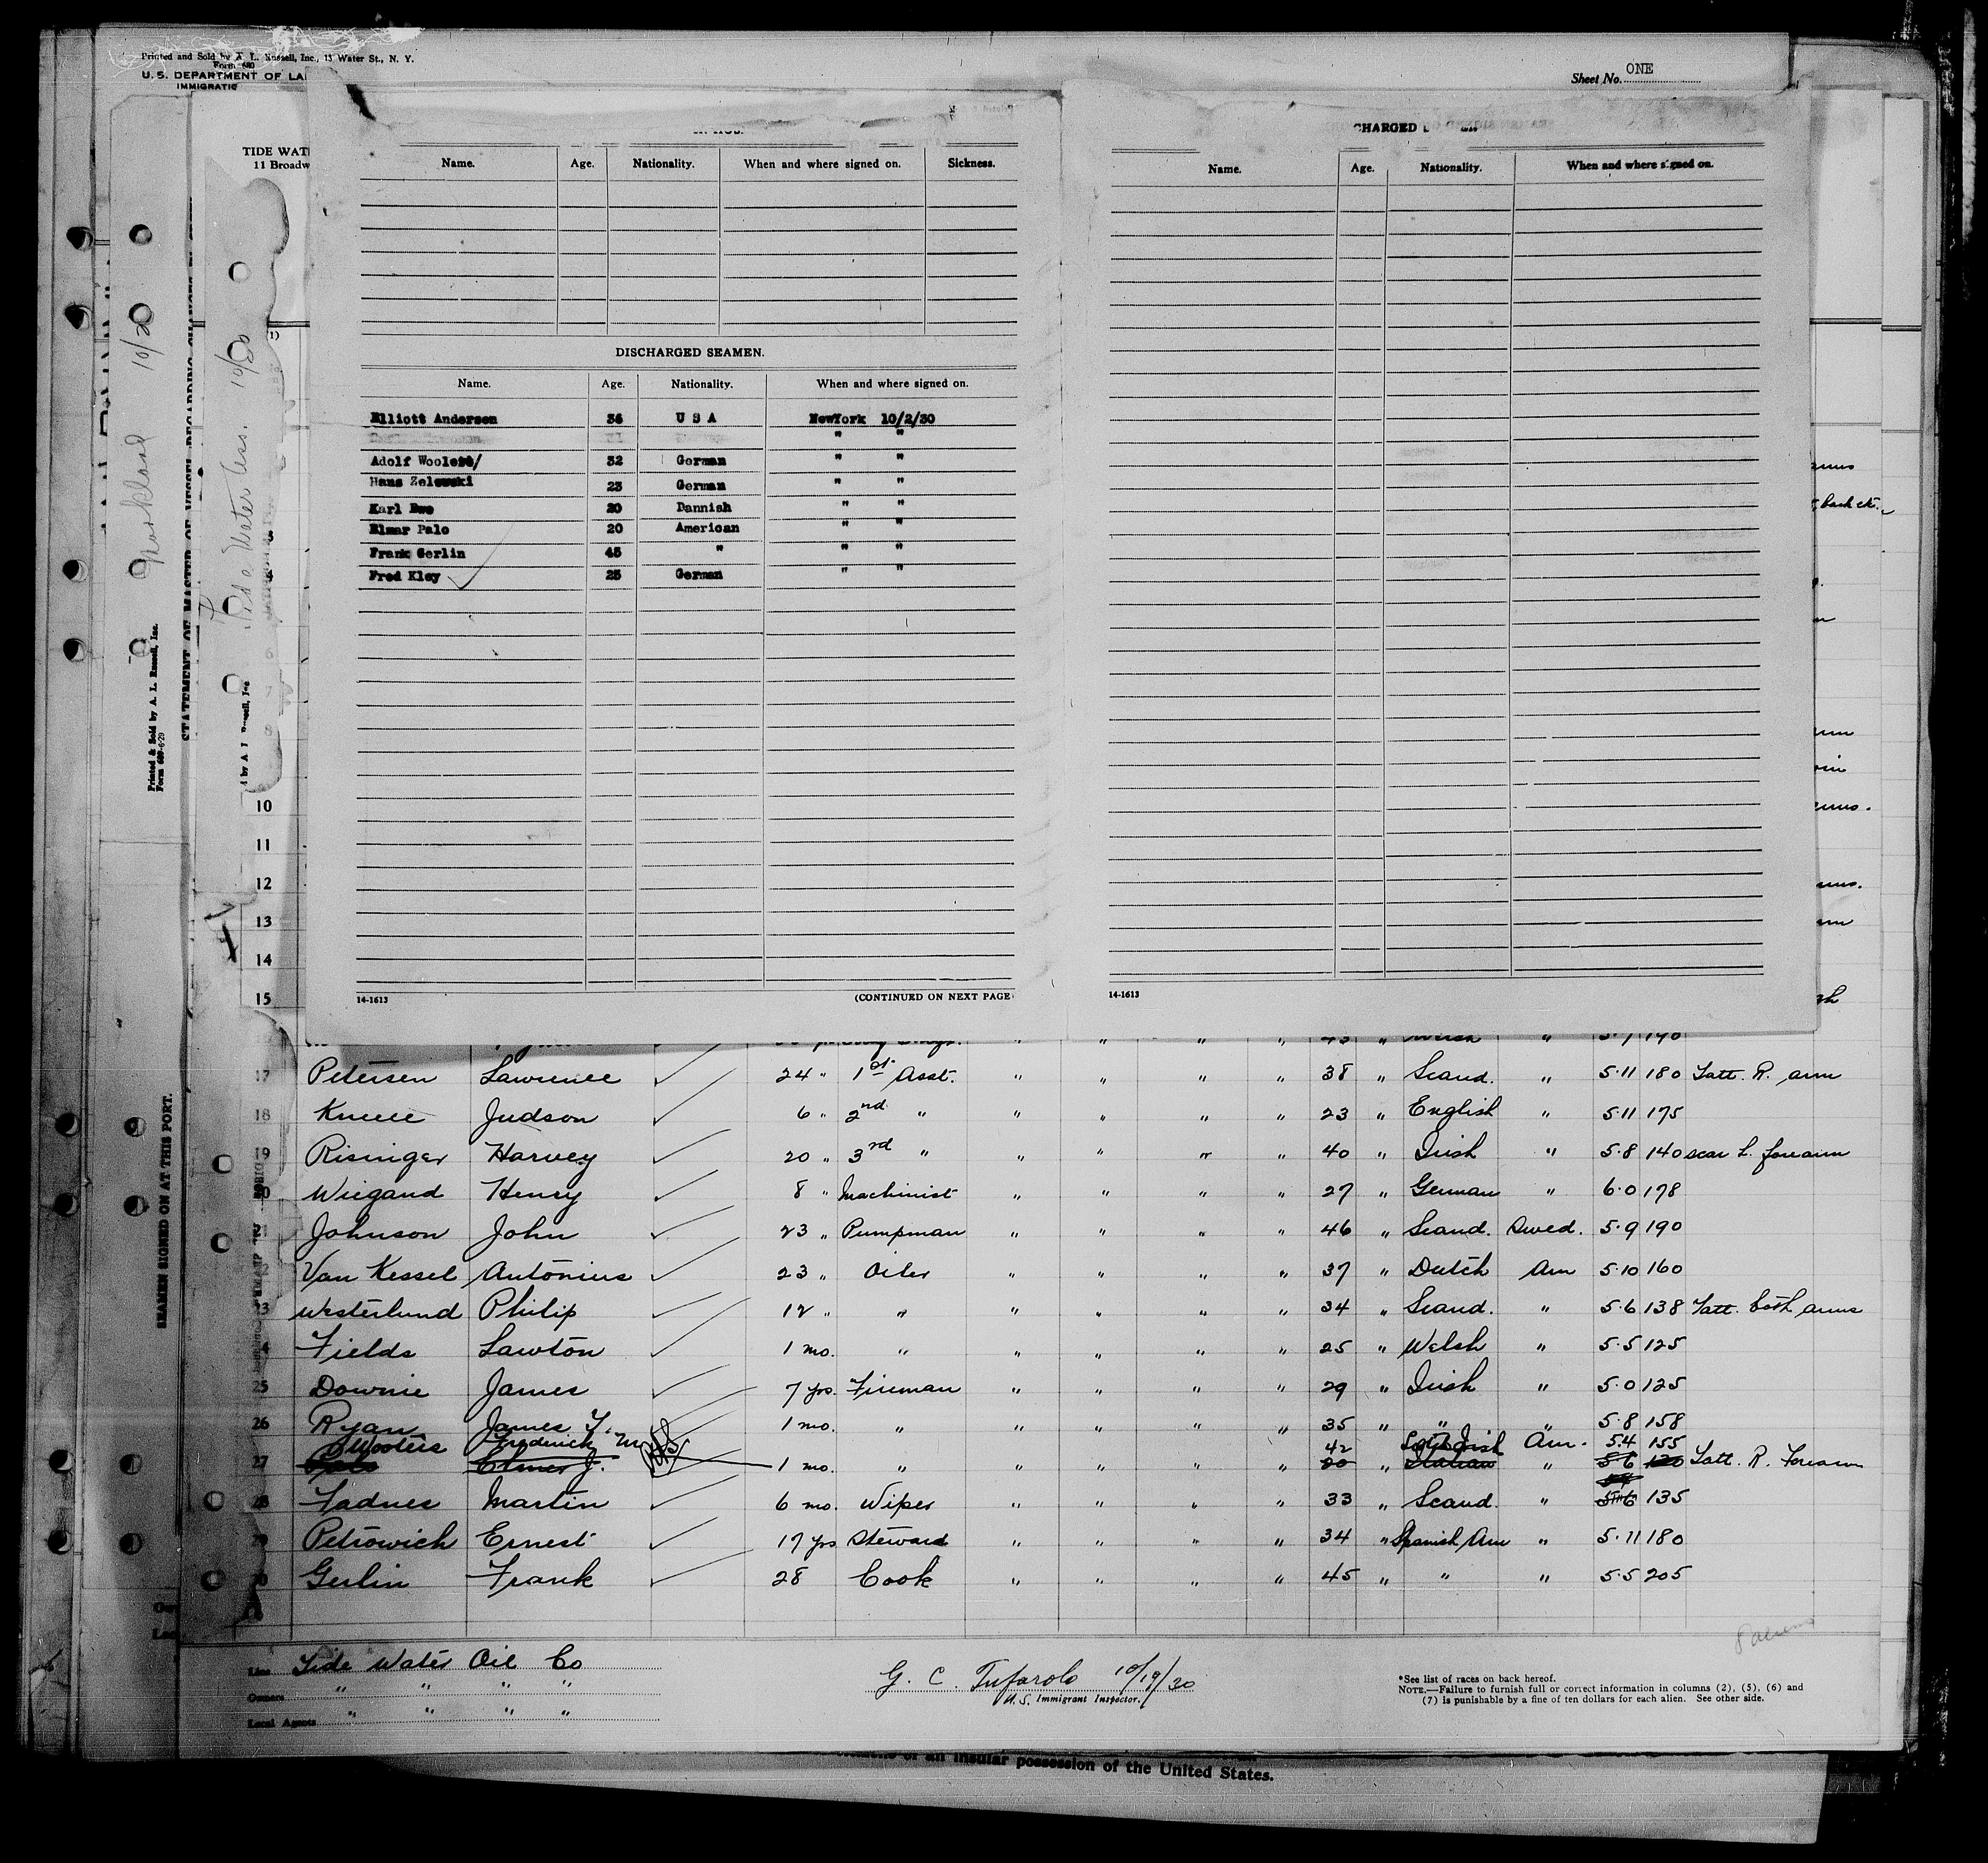 Printed and Sold by A. L. Russell, Inc., 13 Water St., N. Y.
Form 680
U. S. DEPARTMENT OF LA
IMMIGRATIO
Sheet No. ONE
TIDE WAT
11 Broadw
Name. Age. Nationality. When and where signed on. Sickness.
DISCHARGED SEAMEN.
Name. Age. Nationality. When and where signed on.
Elliott Andersen 36 U S A NewYork 10/2/30
" "
Adolf 32 German " "
Hans Zelewski 23 German " "
Karl 20 Dannish " "
Elmar Palo 20 American " "
Frank Gerlin 45 " " "
Fred Kley 25 German " "
14-1613 (CONTINUED ON NEXT PAGE
CHARGED
Name. Age. Nationality. When and where signed on.
14-1613
10/2
Printed & Sold by A. L. Russell, Inc.
Form 689-6-29
STATEMENT OF MASTER OF VESSEL REGARDING CHANGES
SEAMEN SIGNED ON AT THIS PORT.
Tide Water Ass. 10/20
10
11
12
13
14
15
17 Petersen Lawrence 24 " 1st Asst. " " " " 38 " Scand. " 5.11 180 Tatt. R. arm
18 Judson 6 " 2nd " " " " " 23 " English " 5.11 175
19 Risinger Harvey 20 " 3rd " " " " " 40 " Irish " 5.8 140 scar L. forearm
20 Wiegand Henry 8 " Machinist " " " " 27 " German " 6.0 178
Johnson John 23 " Pumpman " " " " 46 " Scand. Swed. 5.9 190
Van Kessel Antonius 23 " Oiler " " " " 37 " Dutch Am 5.10 160
Westerlund Philip 12 " " " " " " 34 " Scand. " 5.6 138 Tatt. both arms
Fields Lawton 1 mo. " " " " " 25 " Welsh " 5.5 125
25 Downie James 7 yrs. Fireman " " " " 29 " Irish " 5.0 125
26 Ryan James 1 mo. " " " " " 35 " " " 5.8 158
Wooters Frederick M 42 Irish Am. 5.4 155
27 Elmer J. 1 mo. " " " " " 20 " Italian " 5 6 Tatt. R. Forearm
28 Fadnes Martin 6 mo. Wiper " " " " 33 " Scand. " 135
Petrowich Ernest 17 yrs Steward " " " " 34 " Spanish Am " 5.11 180
Gerlin Frank 28 Cook " " " " 45 " " " 5.5 205
Line Tide Water Oil Co
Owners " " " "
Local Agents " " " "
G. C. Tufarolo 10/19/30
U.S. Immigrant Inspector.
*See list of races on back hereof.
NOTE.—Failure to furnish full or correct information in columns (2), (5), (6) and
(7) is punishable by a fine of ten dollars for each alien. See other side.
of an insular possession of the United States.